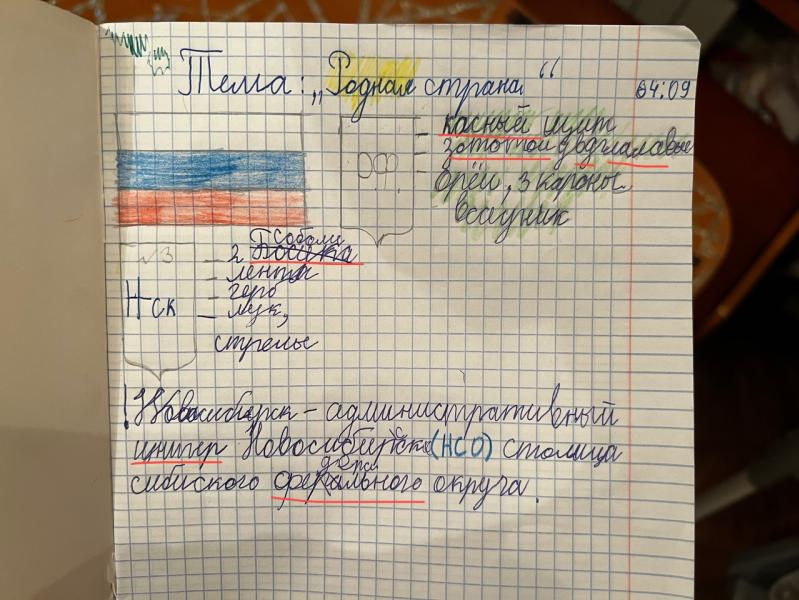 Тема: „Родная страна“
04:09
РФ
- касный щит
зототой двдглалавые
- Орёл, 3 кароны
всадник
№3
Нск
- 2 Соболи
- лента
- герб
- лук,
стрелы
! Новосибирск - административный
цнитер Новосибирск (НСО) столица
сибиского федерального округа.